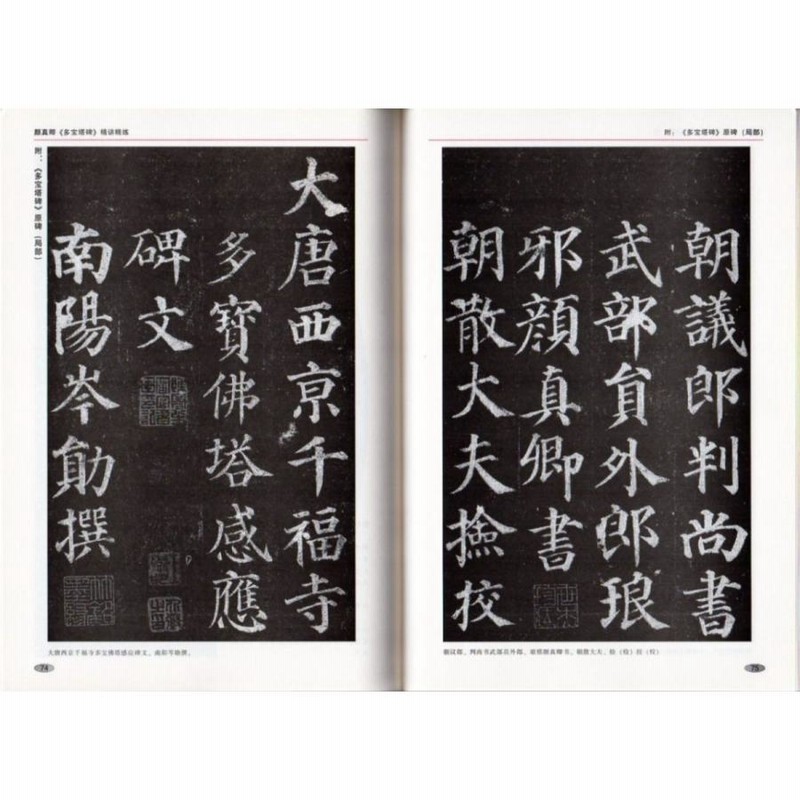 颜真卿《多宝塔碑》精讲精练
附：《多宝塔碑》原碑（局部）
大唐西京千福寺
多寶佛塔感應
碑文
南陽岑勛撰
大唐西京千福寺多宝佛塔感应碑文。南阳岑勋撰。
74
附：《多宝塔碑》原碑（局部）
朝議郎判尚書
武部員外郎琅
邪顏真卿書
朝散大夫撿挍
朝议郎、判尚书武部员外郎、琅邪颜真卿书。朝散大夫、检（检）挍（校）
75